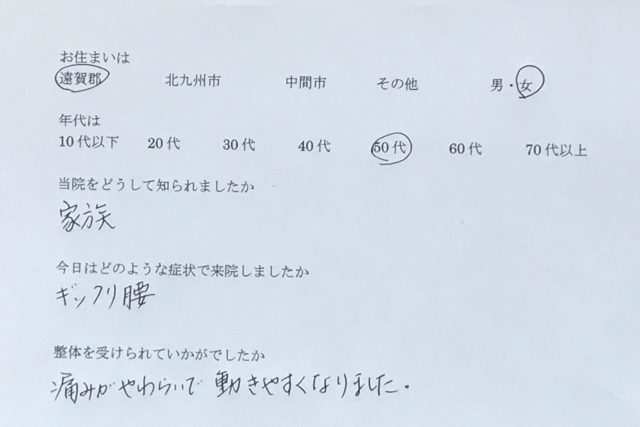 お住まいは
遠賀郡 北九州市 中間市 その他 男・女
年代は
10代以下 20代 30代 40代 50代 60代 70代以上
当院をどうして知られましたか
家族
今日はどのような症状で来院しましたか
ギックリ腰
整体を受けられていかがでしたか
痛みがやわらいで動きやすくなりました.